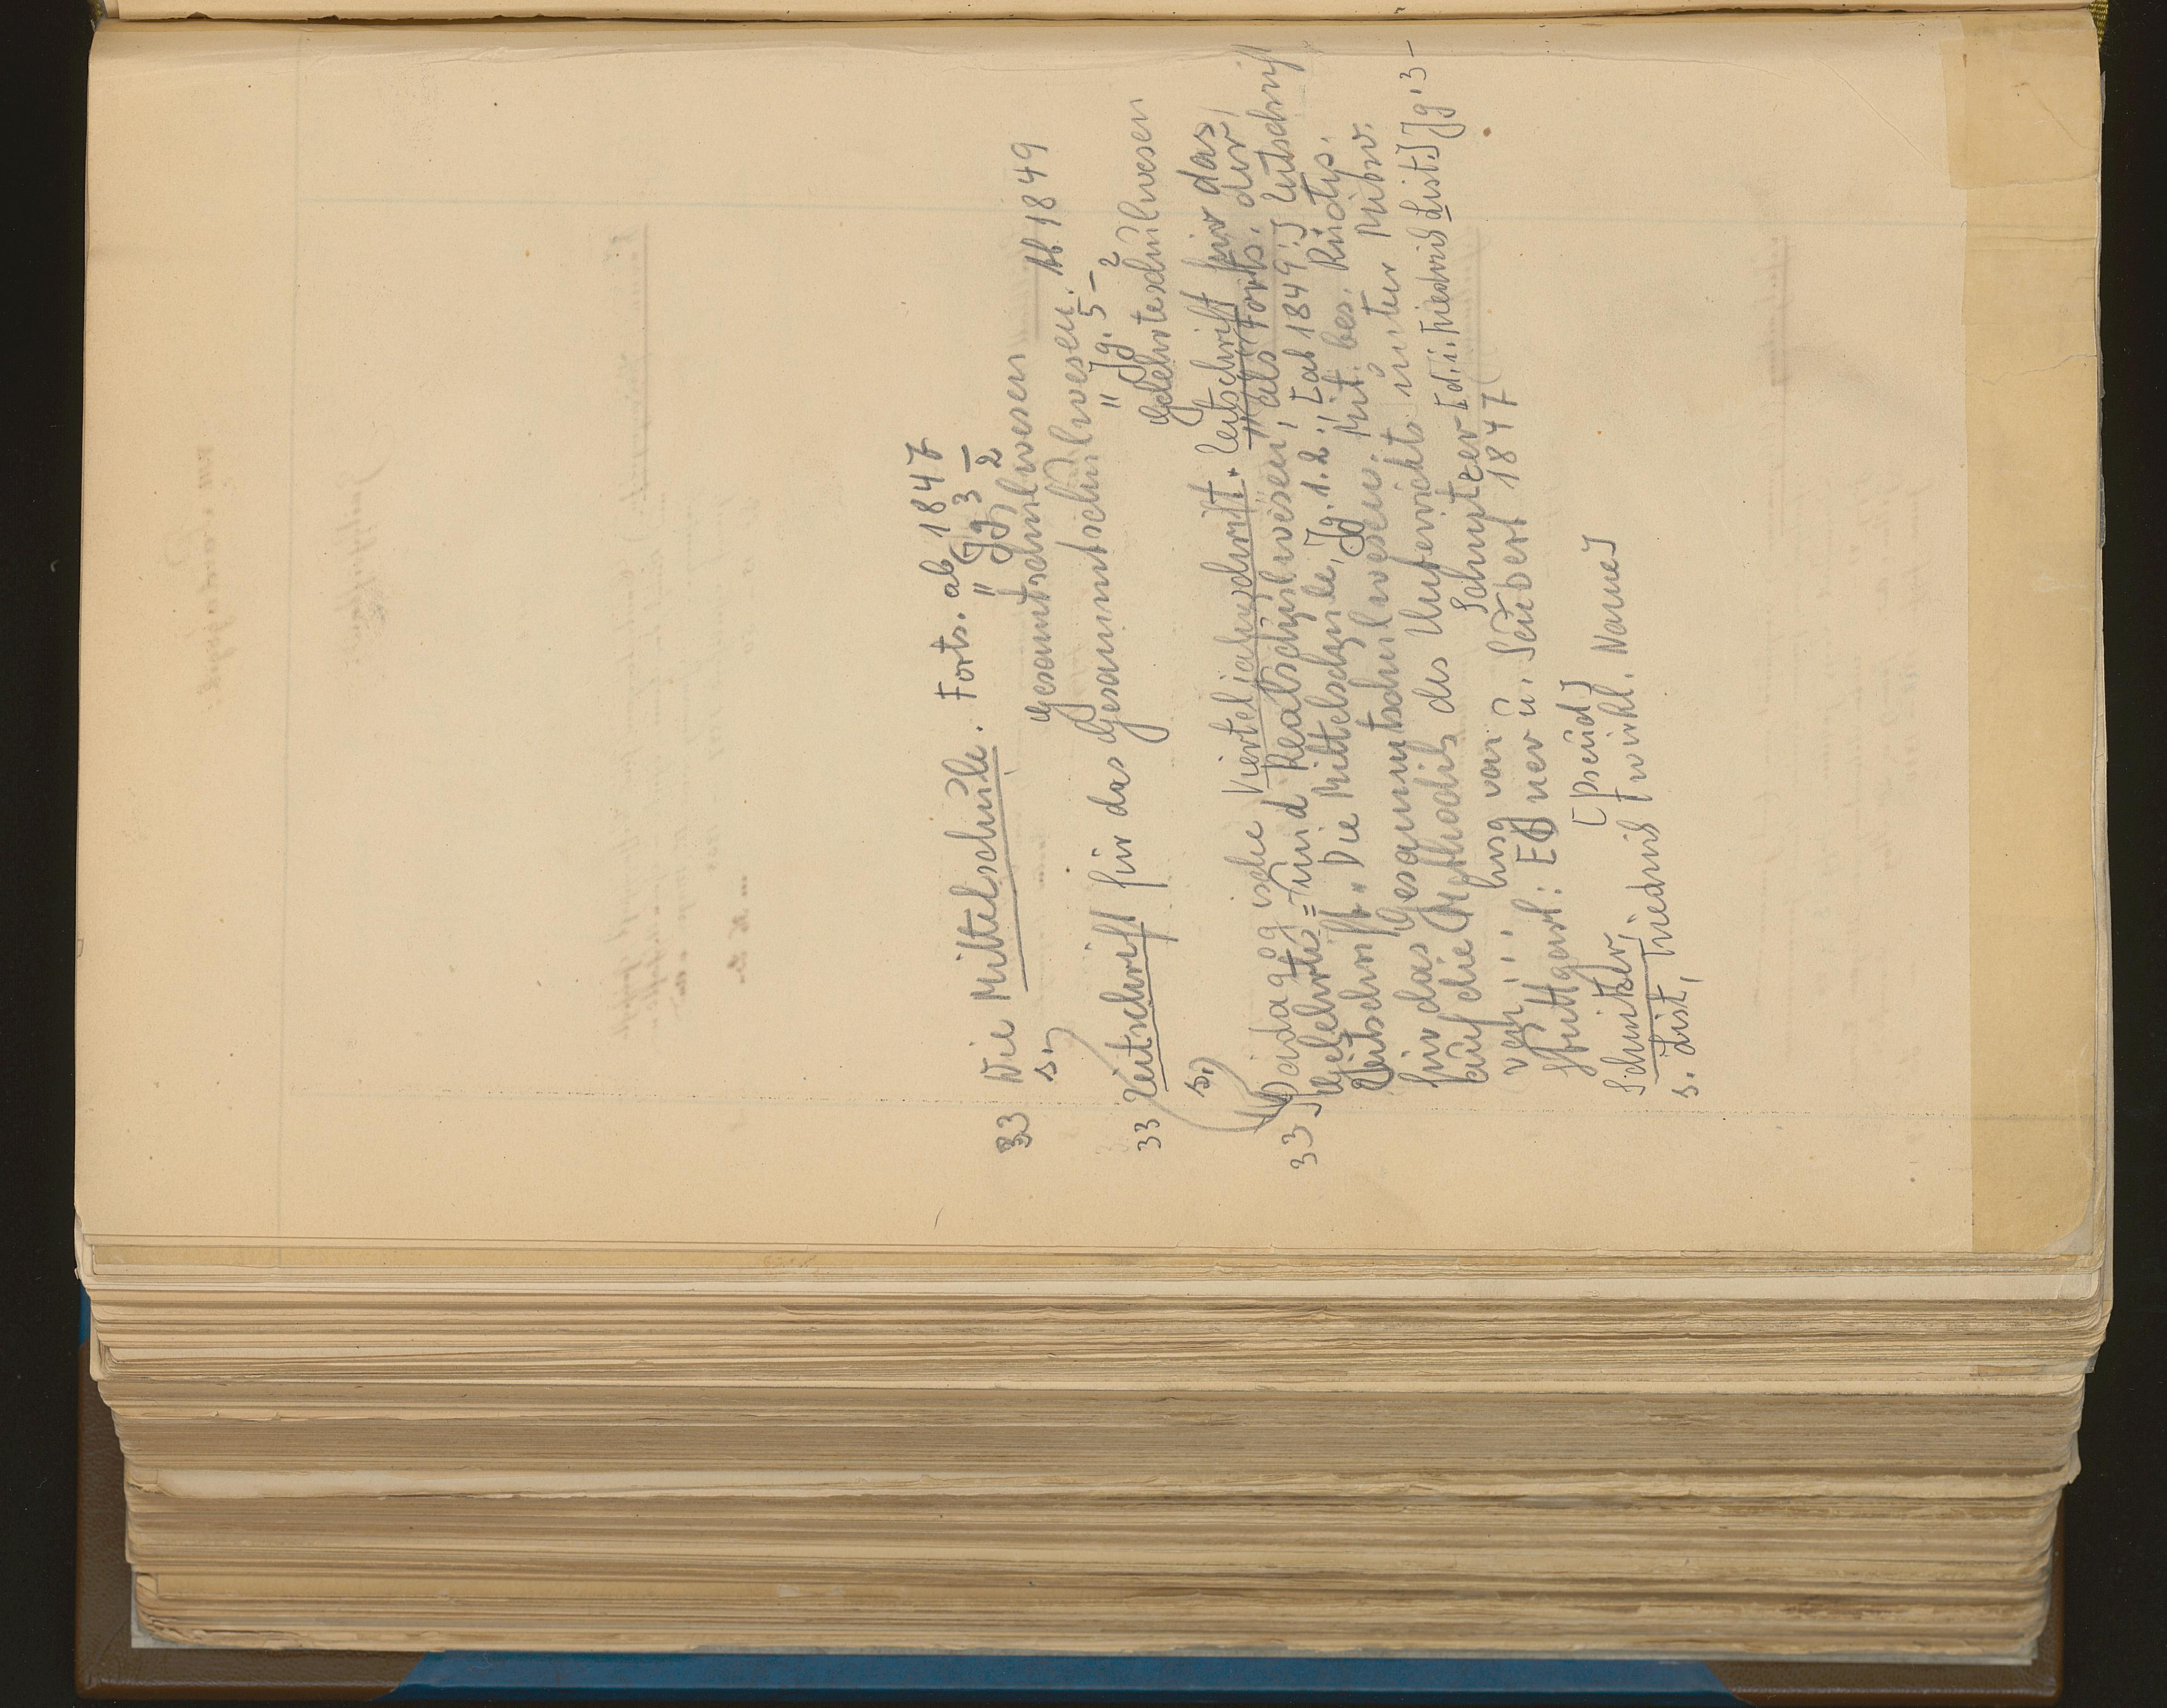 33 Die Mittelschule. Forts. ab 1847
s. " Jg 3 – 2
Gesamtschulwesen
33 Zeitschrift für das Gesammtschulwesen. Ab 1849
s. " Jg. 5 – 2
Gelehrteschulwesen
33 Pädagogische Vierteljahrsschrift. Zeitschrift für das
Gelehrte= und Realschulwesen, als Forts. der
Zeitschrift. Die Mittelschule, Jg. 1.2.; [ab 1849:] Zeitschrift
für das Gesammtschulwesen. Mit bes. Rücks.
auf die Methodik des Unterrichts unter Mitw.
hrsg von Schnitzer [d. i. Friedrich List] Jg. 3 –
Stuttgart: Ebner u. Seubert 1847
Schnitzer, [Pseud]
s. List, Friedrich [wirkl. Name]